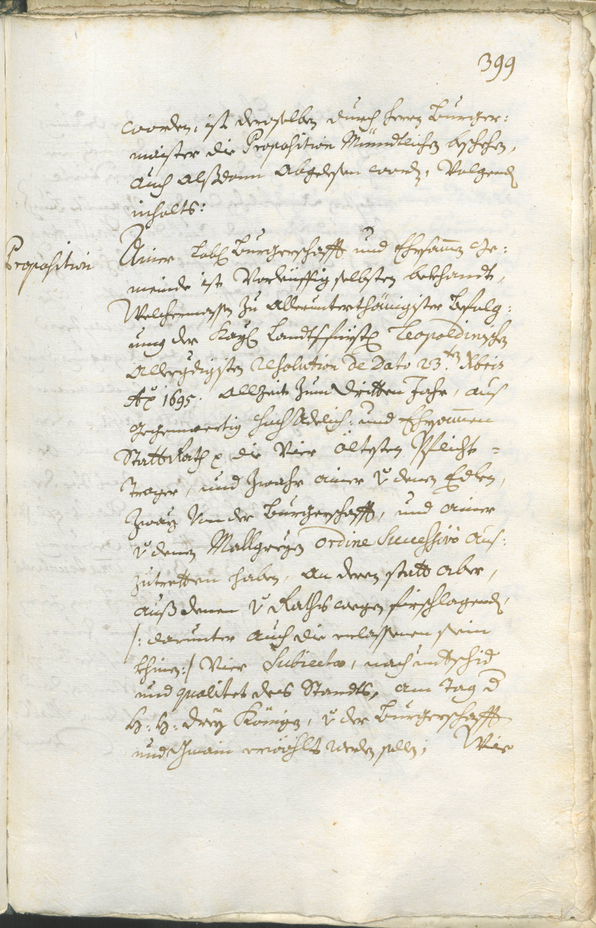 399
worden, ist derselben durch herrn Burger:
maister die Proposition Mündtlichen beschehen,
auch alßdann abgelesen worden, Volgendts
inhalts:
Proposition
Ainer Lobl Burgerschafft und Ehrsamen Ge:
meinde ist Vorleüffig selbsten bekhandt,
Welchermassen zu allerunterthänigster befolg:
ung der Kayl Landtsfürstl Leopoldinischen
allergdigisten resolution de Dato 23.ten Xbris
Ao 1695. allzeit zum dritten Jahr, auß
gegenwertig hoch Adelich: und Ehrsammen
Statt Rath die Vier öltesten Pflicht=
trager, und zwahr ainer v denen Edlen,
zway von der Burgerschafft, und ainer
v denen Mallgreyen ordine Successivo auß:
zutretten haben, an deren statt aber,
auß denen v Raths wegen fürschlagenden,
/: darunter auch die erlassenen sein
khinen :/ Vier Subiecta, nach untschid
und qualitet des Standts, am Tag d
H: H: drey Königen, v der Burgerschafft
und Gmain erwöhlt werden sollen; Wie